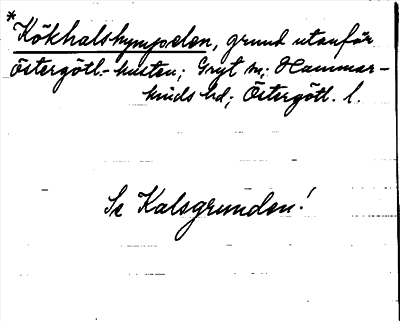 *Kökhalskympelen, grund utanför
Östergötl.-kusten; Gryt sn; Hammar-
kinds hd; Östergötl. l.
Se Kalsgrunden!